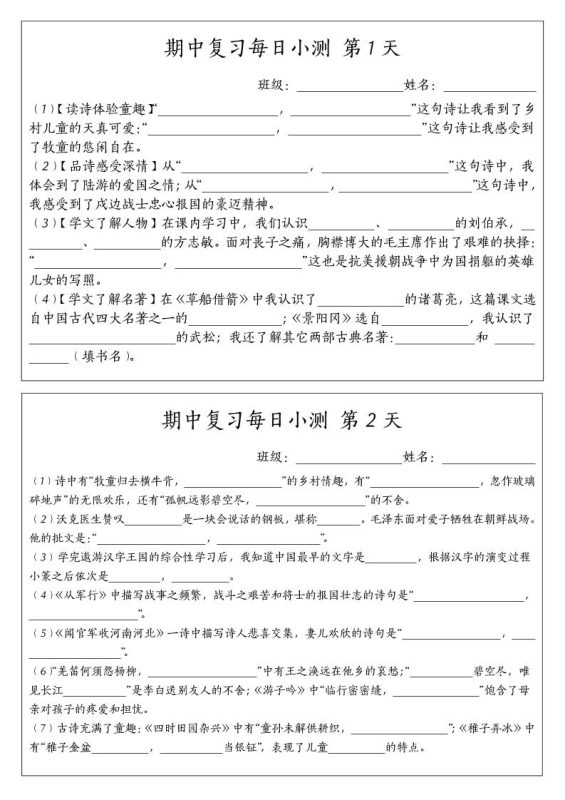 期中复习每日小测 第1天
班级：________________姓名：______________
（1）【读诗体验童趣】“__________________，__________________”这句诗让我看到了乡
村儿童的天真可爱；“__________________，____________________”这句诗让我感受到
了牧童的悠闲自在。
（2）【品诗感受深情】从“__________________，__________________”这句诗中，我
体会到了陆游的爱国之情；从“__________________，__________________”这句诗中，
我感受到了戍边战士忠心报国的豪迈精神。
（3）【学文了解人物】在课内学习中，我们认识__________、__________的刘伯承，__
________、__________的方志敏。面对丧子之痛，胸襟博大的毛主席作出了艰难的抉择：
“__________________，__________________”这也是抗美援朝战争中为国捐躯的英雄
儿女的写照。
（4）【学文了解名著】在《草船借箭》中我认识了____________的诸葛亮，这篇课文选
自中国古代四大名著之一的______________；《景阳冈》选自____________，我认识了
______________________的武松；我还了解其它两部古典名著：____________和 ______
______（填书名）。
期中复习每日小测 第2天
班级：________________姓名：______________
（1）诗中有“牧童归去横牛背，________________”的乡村情趣，有“________________，忽作玻璃
碎地声”的无限欢乐，还有“孤帆远影碧空尽，________________”的不舍。
（2）沃克医生赞叹__________是一块会说话的钢板，堪称________。毛泽东面对爱子牺牲在朝鲜战场。
他的批文是：“________________，________________”。
（3）学完遨游汉字王国的综合性学习后，我知道中国最早的文字是________，根据汉字的演变过程
小篆之后依次是________，________。
（4）《从军行》中描写战事之频繁，战斗之艰苦和将士的报国壮志的诗句是“________________，
________________”。
（5）《闻官军收河南河北》一诗中描写诗人悲喜交集，妻儿欢欣的诗句是“________________，____
____________”。
（6）“羌笛何须怨杨柳，________________”中有王之涣远在他乡的哀愁；“__________碧空尽，唯
见长江__________”是李白送别友人的不舍；《游子吟》中“临行密密缝，____________”饱含了母
亲对孩子的疼爱和担忧。
（7）古诗充满了童趣：《四时田园杂兴》中有“童孙未解供耕织，________________”；《稚子弄冰》中
有“稚子金盆__________，__________当银钲”，表现了儿童__________的特点。